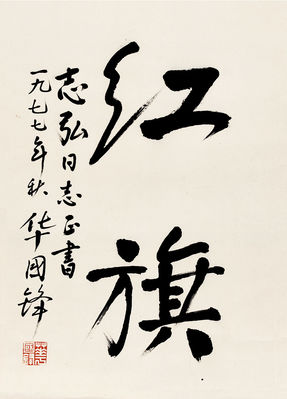 红旗
志弘同志正書
一九七七年秋 华國鋒